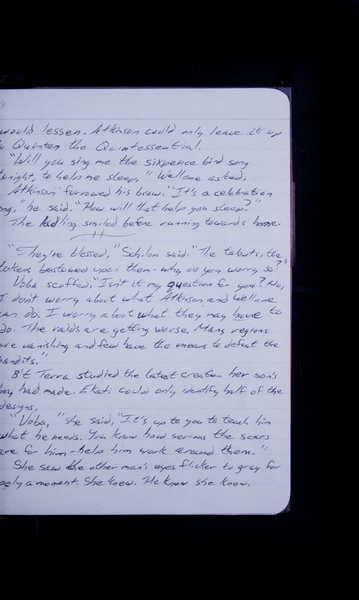 would lessen. Atkinson could only leave it up
Quinten the Quintessential.
"Will you sing me the sixpence bird song
tonight, to help me sleep," Wellone asked.
Atkinson furrowed his brow. "It's a celebration
song," he said. "How will that help you sleep?"
The hadling smiled before running towards home.
"They're blessed," said. "The talents, the
bestowed upon them - why do you worry so?"
Voba scoffed, "Isn't it my question for you? No,
I don't worry about what Atkinson and Wellone
can do. I worry about what they may have to
do. The raids are getting worse. Many regions
are vanishing and few have the means to defeat the
bandits."
Bit Terra studied the latest creation her sons
they had made. Etati could only identify half of the
designs.
"Voba," she said, "It's up to you to teach him
what he needs. You know how serious the scars
are for him - help him work around them."
She saw the other man's eyes flicker to gray for
only a moment. She knew. He knew she knew.